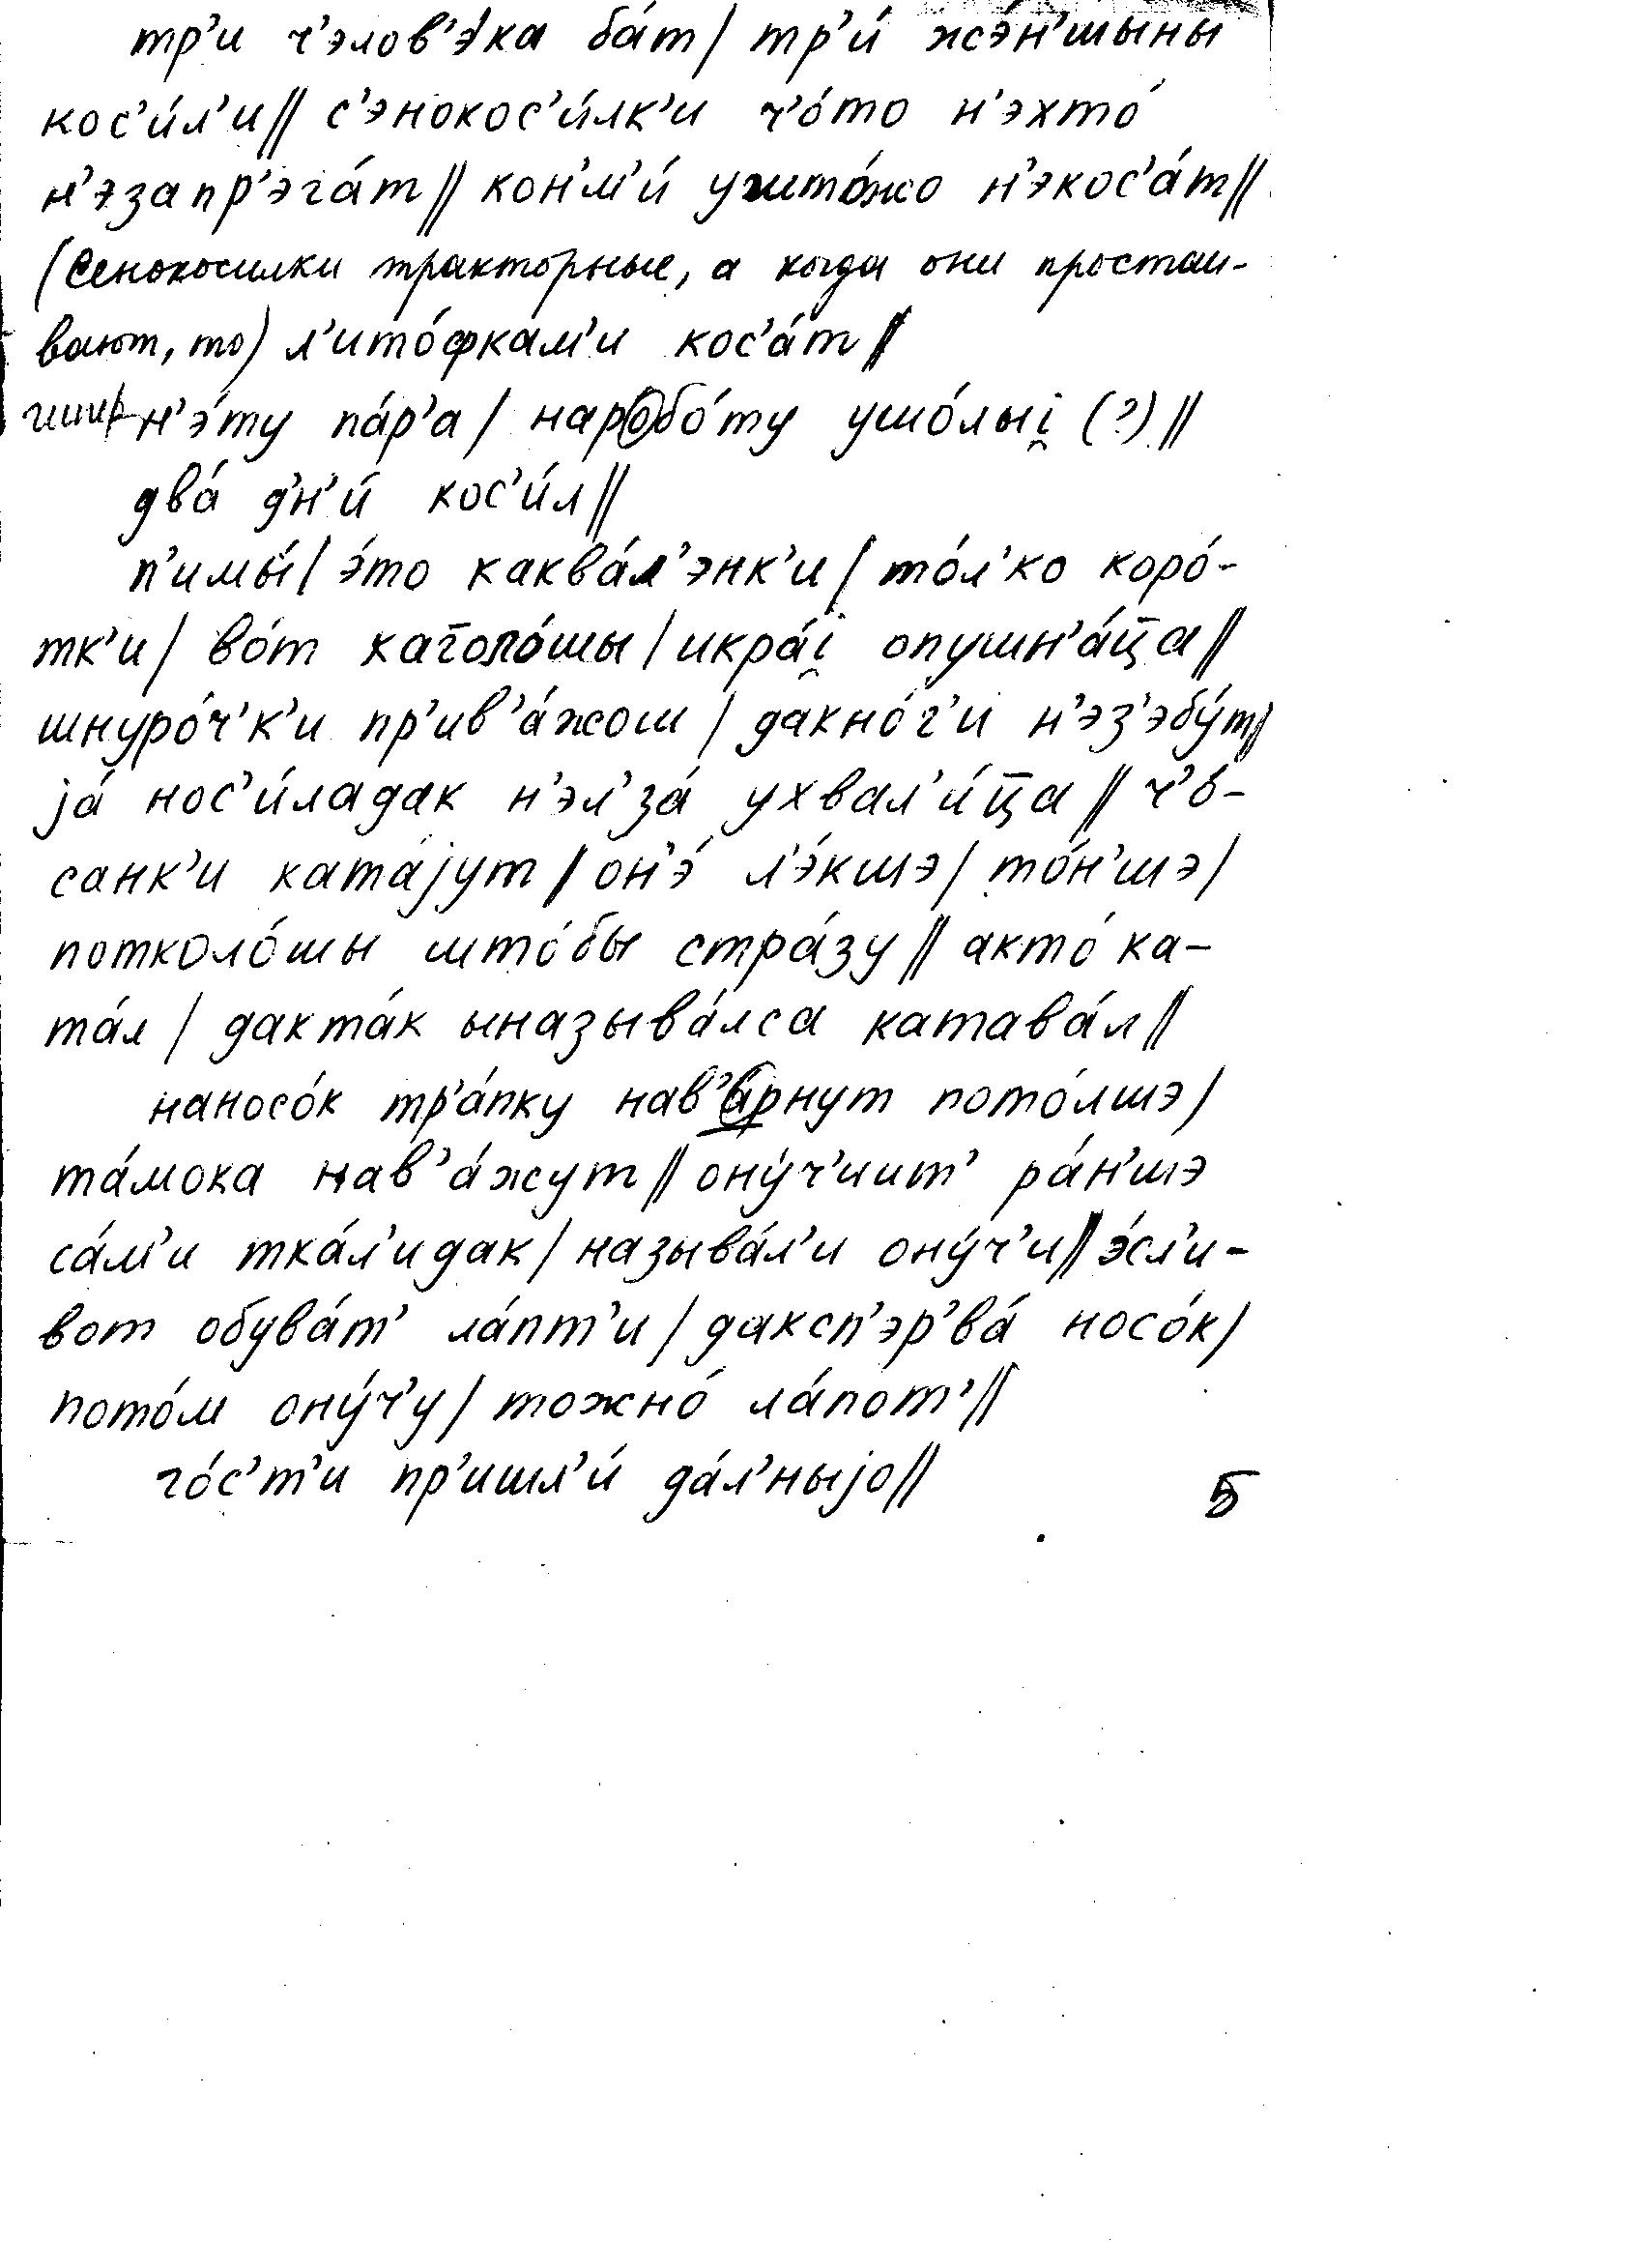 тр'и ч'элов'э́ка ба́т/ тр'и́ жэ́н'шыны
кос'и́л'и// с'энокос'и́лк'и ч'о́то н'эхто́
н'эзапр'эга́т// кон'м'и́ ушто́жо н'экос'а́т//
(Сенокосилки тракторные, а когда они простаи-
вают, то) л'ито́фкам'и кос'а́т//
н'э́ту па́р'а/ наробо́ту ушо́лыі̯ (?)//
два́ д'н'и́ кос'и́л//
п'имы́/ э́то каква́л'энк'и/ то́л'ко коро́-
тк'и/ во́т каголо́шы/ икра́і̯ опушн'а́ц̄а//
шнуро́ч'к'и пр'ив'а́жош/ дакно́г'и н'эз'эбу́т//
jа́ нос'и́ладак н'эл'за́ ухвал'и́ц̄а// ч'о́-
санк'и ката́jут/ он'э́ л'э́кшэ/ то́н'шэ/
потколо́шы што́бы стра́зу// акто́ ка-
та́л/ дакта́к ыназыва́лса катава́л//
наносо́к тр'а́пку нав'а́рнут пото́лшэ/
та́мока нав'а́жут// ону́ч'иит' ра́н'шэ
са́м'и тка́л'идак/ называ́л'и ону́ч'и// э́сл'и-
вот обува́т' ла́пт'и/ даксп'эр'ва́ носо́к/
пото́м ону́ч'у/ тожно́ ла́пот'//
го́с'т'и пр'ишл'и́ да́л'ныjо//
5